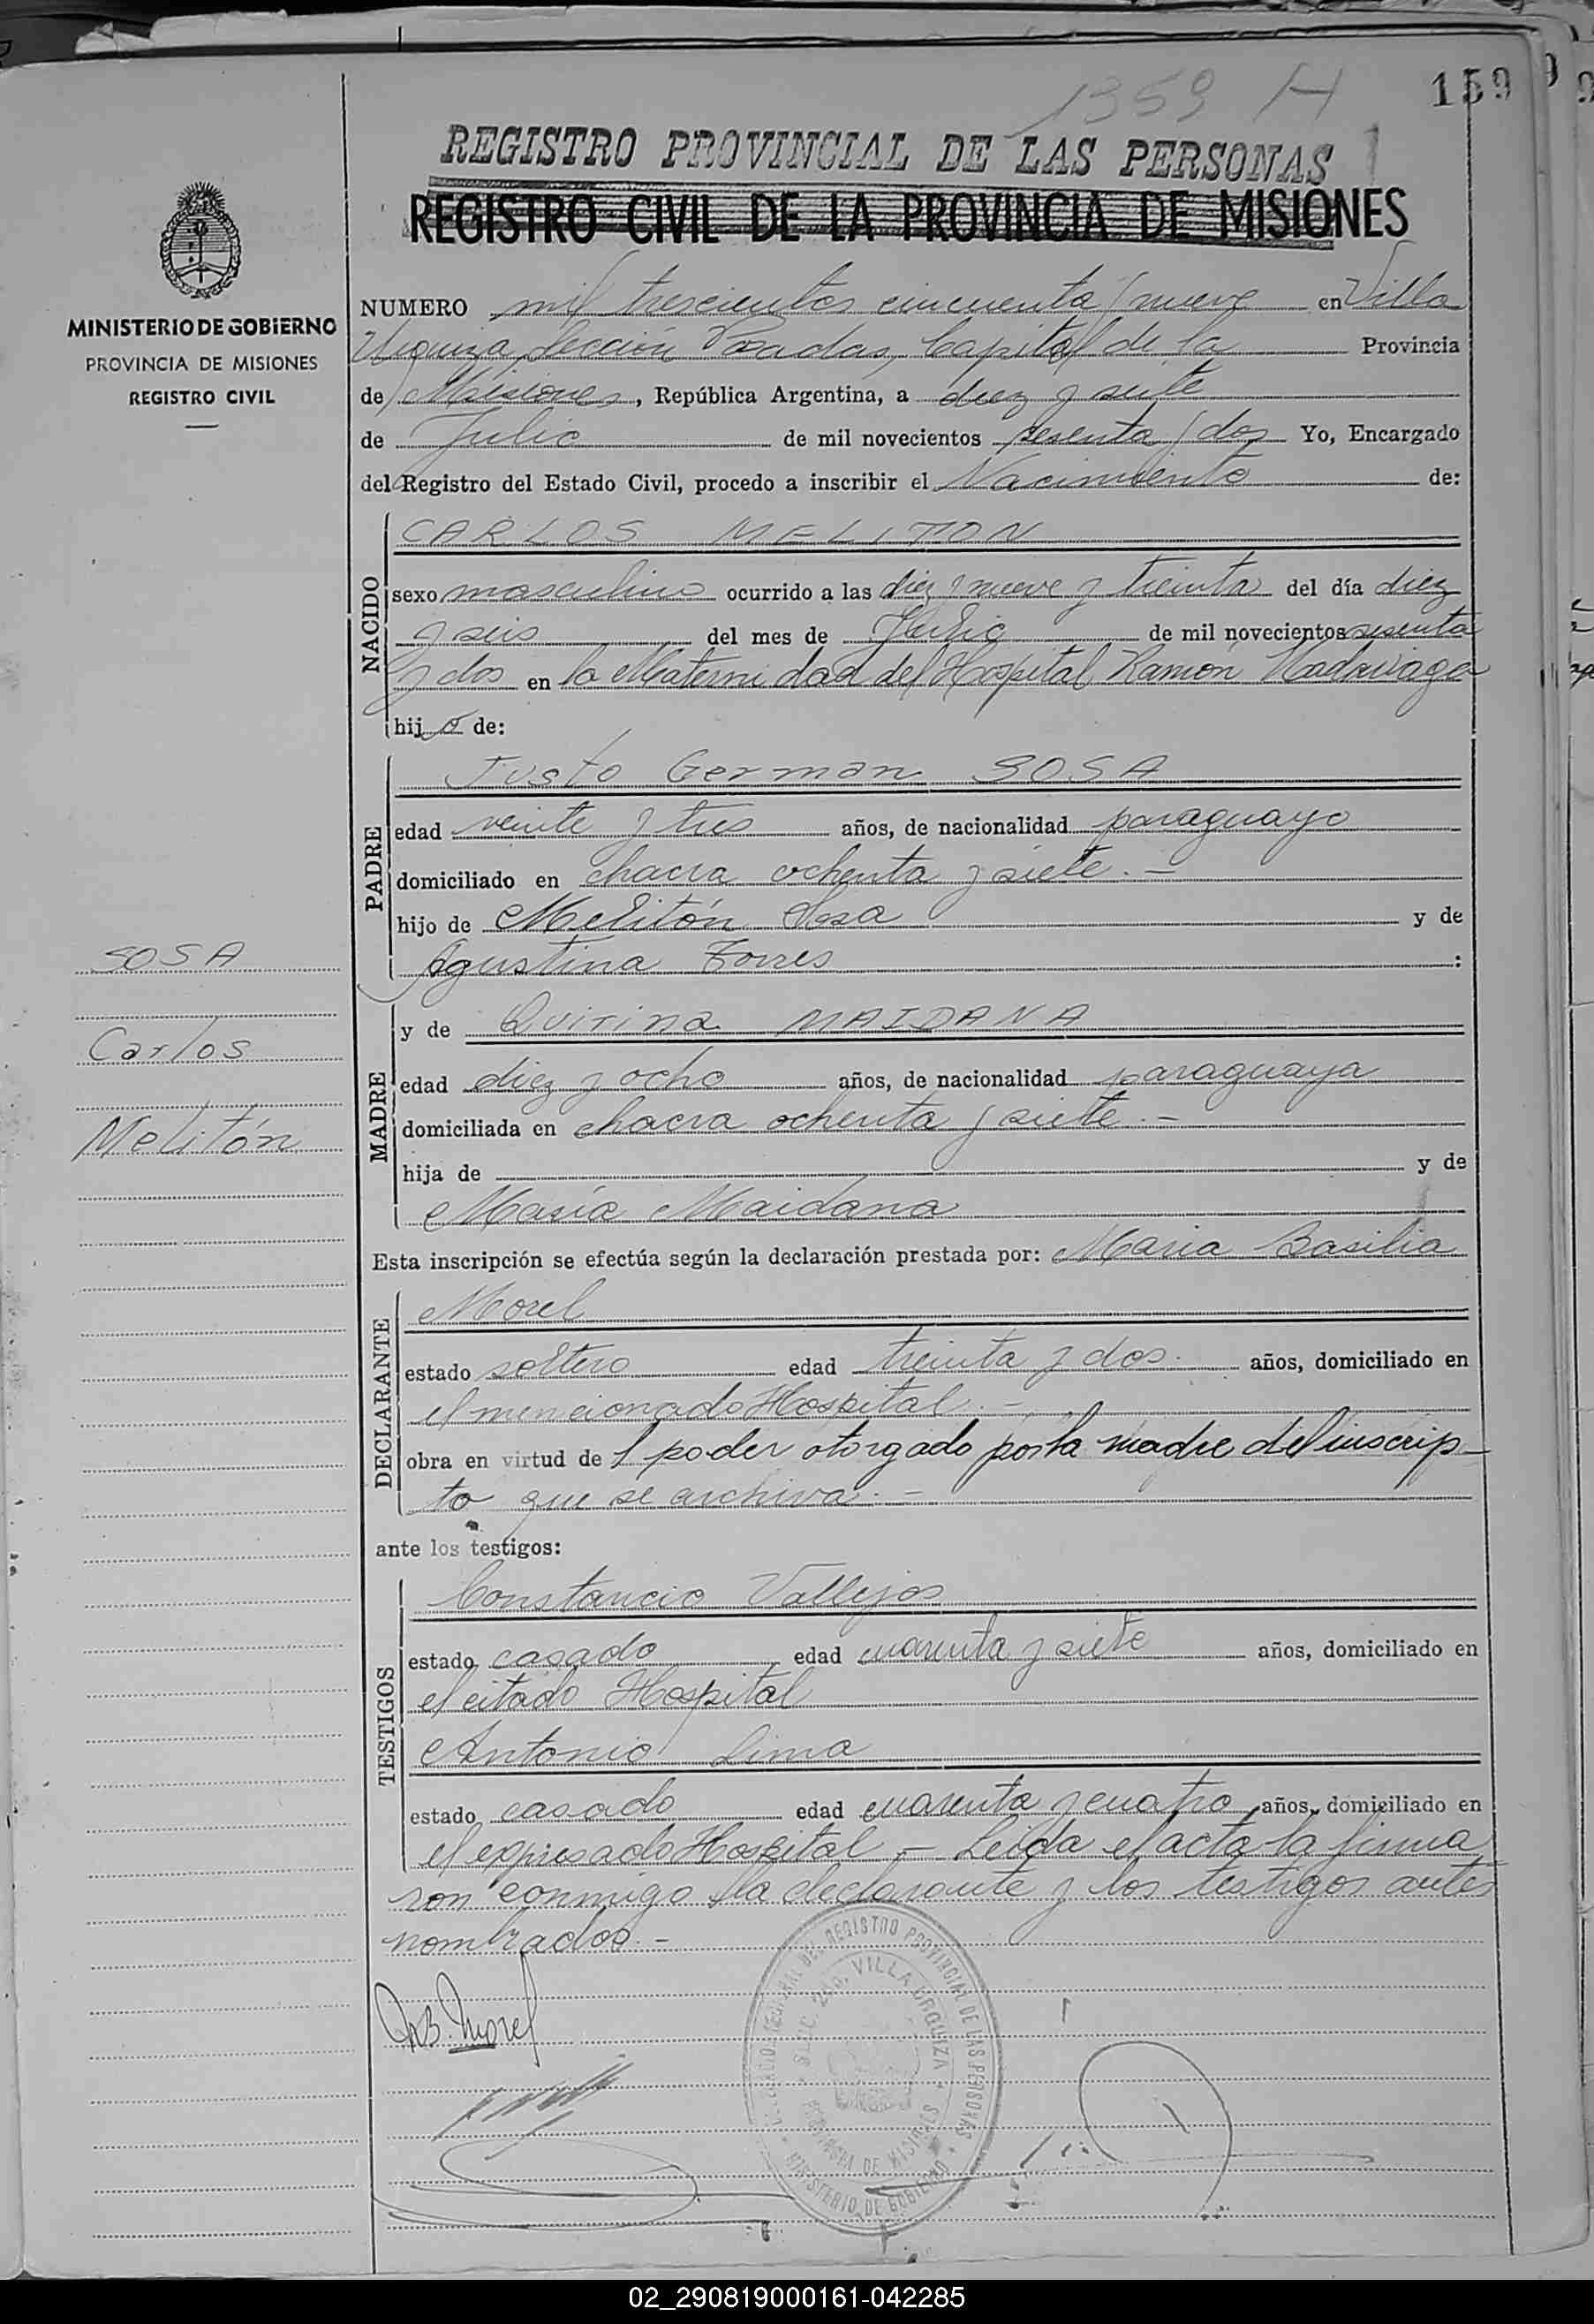 1359 H
159
REGISTRO PROVINCIAL DE LAS PERSONAS
REGISTRO CIVIL DE LA PROVINCIA DE MISIONES
MINISTERIO DE GOBIERNO
PROVINCIA DE MISIONES
REGISTRO CIVIL
NUMERO mil trescientos cincuenta y nueve en Villa
Urquiza, Sección Posadas, Capital de la Provincia
de Misiones, República Argentina, a diez y siete
de Julio de mil novecientos sesenta y dos Yo, Encargado
del Registro del Estado Civil, procedo a inscribir el Nacimiento de:
NACIDO
CARLOS MELITON
sexo masculino ocurrido a las diez y nueve y treinta del día diez
y seis del mes de Julio de mil novecientos sesenta
y dos en la Maternidad del Hospital Ramón Madariaga
hijo de:
PADRE
Justo German SOSA
edad veinte y tres años, de nacionalidad paraguayo
domiciliado en chacra ochenta y siete. -
hijo de Melitón Sosa y de
Agustina Torres :
SOSA
Carlos
Melitón
MADRE
y de Quirina MAIDANA
edad diez y ocho años, de nacionalidad paraguaya
domiciliada en chacra ochenta y siete. -
hija de y de
María Maidana
Esta inscripción se efectúa según la declaración prestada por: Maria Basilia
DECLARANTE
Morel
estado soltero edad treinta y dos. años, domiciliado en
el mencionado Hospital. -
obra en virtud del poder otorgado por la madre del inscrip-
to que se archiva. -
ante los testigos:
TESTIGOS
Constancio Vallejos
estado casado edad cuarenta y siete años, domiciliado en
el citado Hospital
Antonio Lima
estado casado edad cuarenta y cuatro años, domiciliado en
el expresado Hospital - Leida el acta la firma
ron conmigo la declarante y los testigos antes
nombrados. -
M.B. Morel
REGISTRO PROVINCIAL DE LAS PERSONAS
VILLA URQUIZA
PROVINCIA DE MISIONES
MINISTERIO DE GOBIERNO
02_290819000161-042285